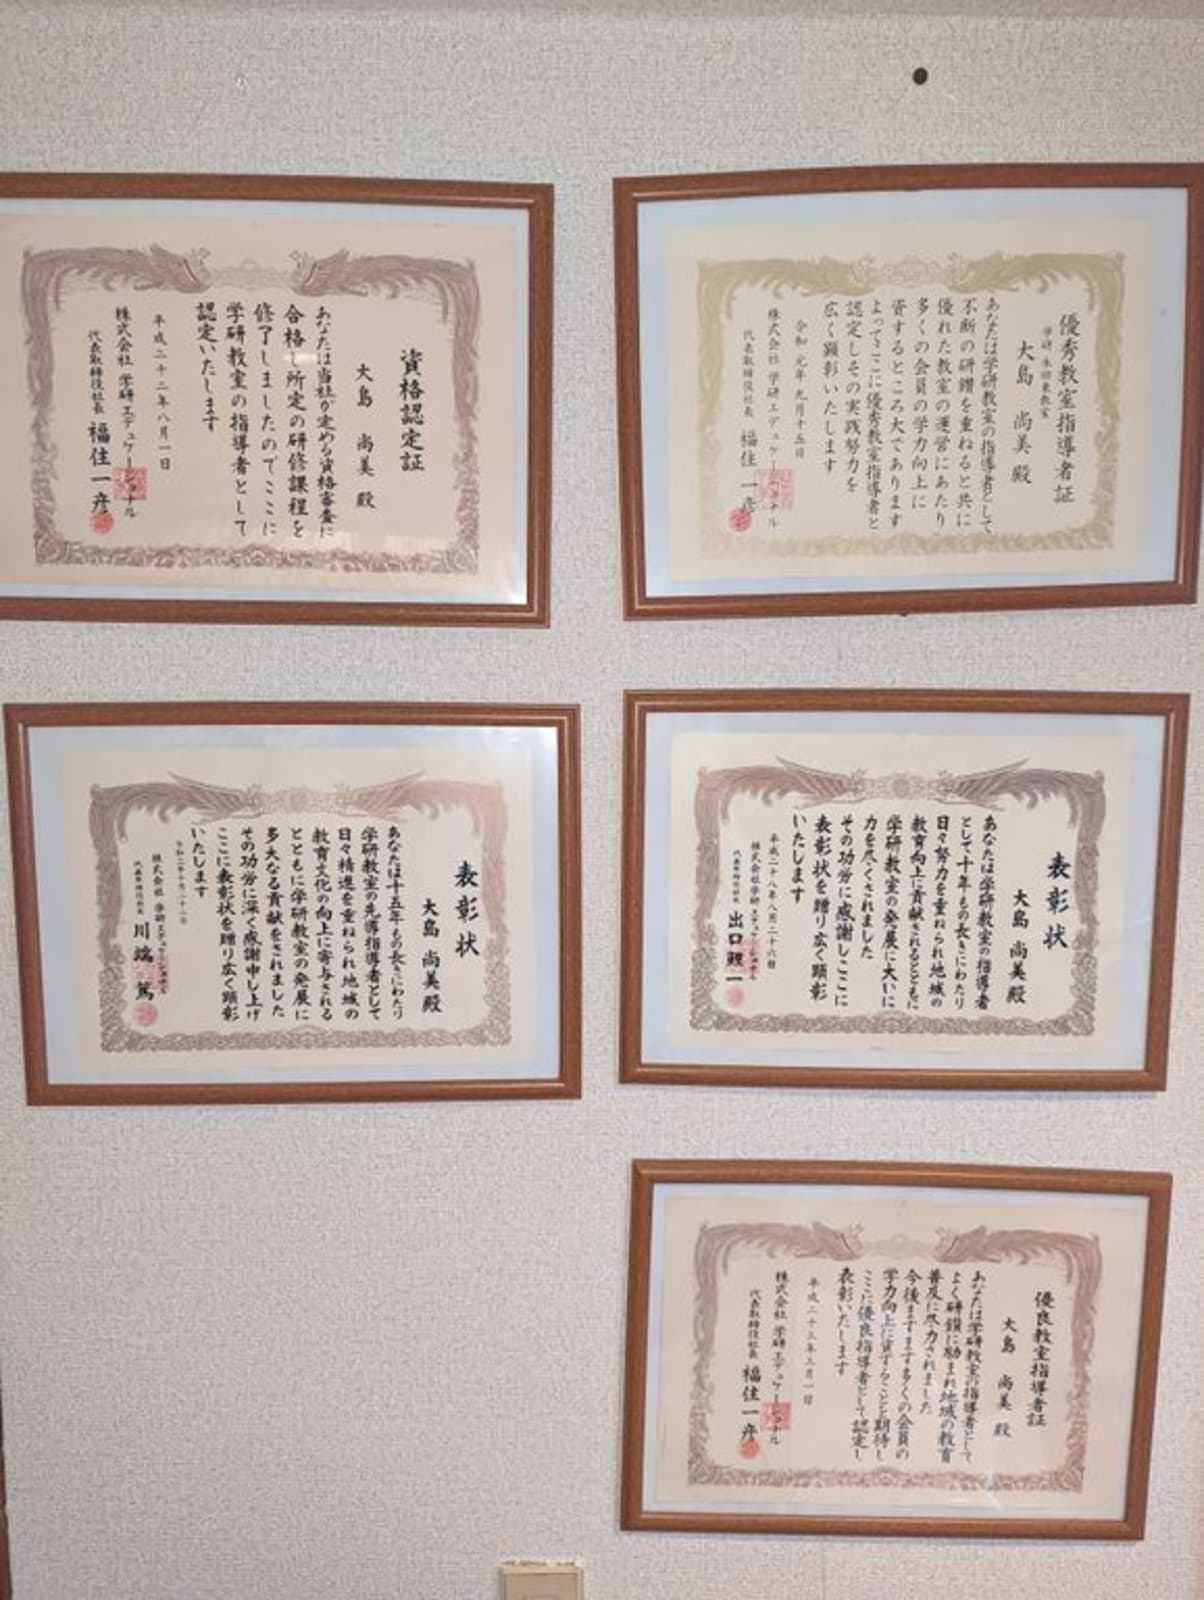 資格認定証
大島 尚美 殿
あなたは当社が定める資格審査に
合格し所定の研修課程を
修了しましたのでここに
学研教室の指導者として
認定いたします
平成二十二年八月一日
株式会社 学研エデュケーショナル
代表取締役社長 福住一彦
優秀教室指導者証
大島 尚美 殿
あなたは学研教室の指導者として
不断の研鑽を重ねると共に
優れた教室の運営にあたり
多くの会員の学力向上に
資するところ大であります
よってここに優秀教室指導者と
認定しその実践努力を
広く顕彰いたします
令和元年九月十五日
株式会社 学研エデュケーショナル
代表取締役社長 福住一彦
表彰状
大島 尚美殿
あなたは十五年もの長きにわたり
学研教室の先導指導者として
日々精進を重ねられ地域の
教育文化の向上に寄与される
とともに学研教室の発展に
多大なる貢献をされました
その功労に深く感謝申し上げ
ここに表彰状を贈り広く顕彰
いたします
株式会社 学研エデュケーショナル
代表取締役社長 川端 篤
表彰状
大島 尚美殿
あなたは学研教室の指導者
として十年もの長きにわたり
日々努力を重ねられ地域の
教育向上に貢献されるとともに
学研教室の発展に大いに
力を尽くされました
その功労に感謝しここに
表彰状を贈り広く顕彰
いたします
平成二十八年八月二十六日
株式会社学研エデュケーショナル
代表取締役社長 出口鯉一
優良教室指導者証
大島 尚美 殿
あなたは学研教室の指導者として
よく研鑽に励まれ地域の教育
普及に尽力されました
今後ますます多くの会員の
学力向上に資することを期待し
ここに優良指導者として認定し
表彰いたします
平成二十三年三月一日
株式会社 学研エデュケーショナル
代表取締役社長 福住一彦